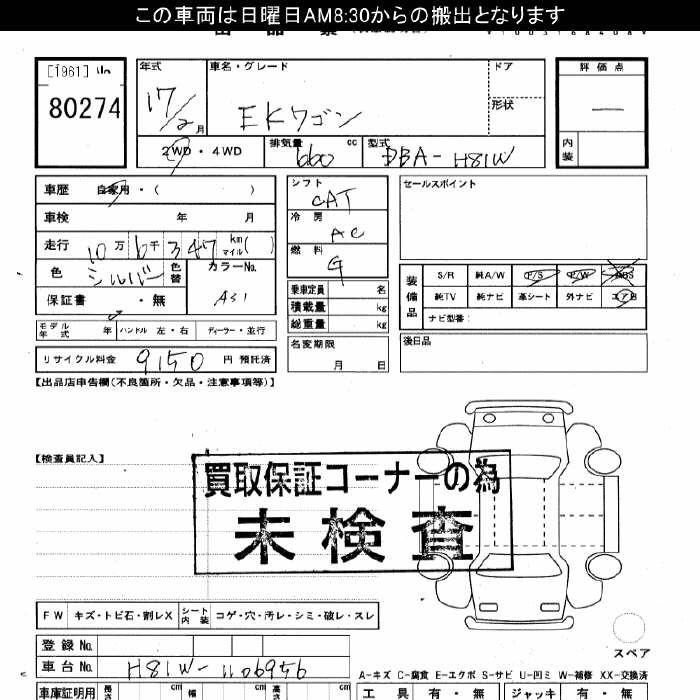 この車両は日曜日AM8:30からの搬出となります
[1961]
80274
年式
17/2月
車名・グレード
EKワゴン
ドア
形状
評価点
—
内装
2WD・4WD
排気量
660
cc
型式
DBA-H81W
車歴 自家用・( )
車検 年 月
走行 10万6千347km マイル( )
色 シルバー 色替 カラーNo. A31
保証書 ・無
モデル年式 年 ハンドル 左・右 ディーラー・並行
リサイクル料金 9150 円 預託済
シフト
CAT
冷房
AC
燃料
G
乗車定員 名
積載量 kg
総重量 kg
名変期限
月 日
セールスポイント
装備品
S/R 純A/W P/S P/W ABS
純TV 純ナビ 革シート 外ナビ エアB
ナビ型番:
後日品
【出品店申告欄(不良箇所・欠品・注意事項等)】
【検査員記入】
買取保証コーナーの為
未検査
FW キズ・トビ石・割レX シート内装 コゲ・穴・汚レ・シミ・破レ・スレ
スペア
登録No.
車台No. H81W-1106956
A-キズ C-腐食 E-エクボ S-サビ U-凹ミ W-補修 XX-交換済
車庫証明用 長さ cm 幅 cm 高さ cm
工具 有・無 ジャッキ 有・無